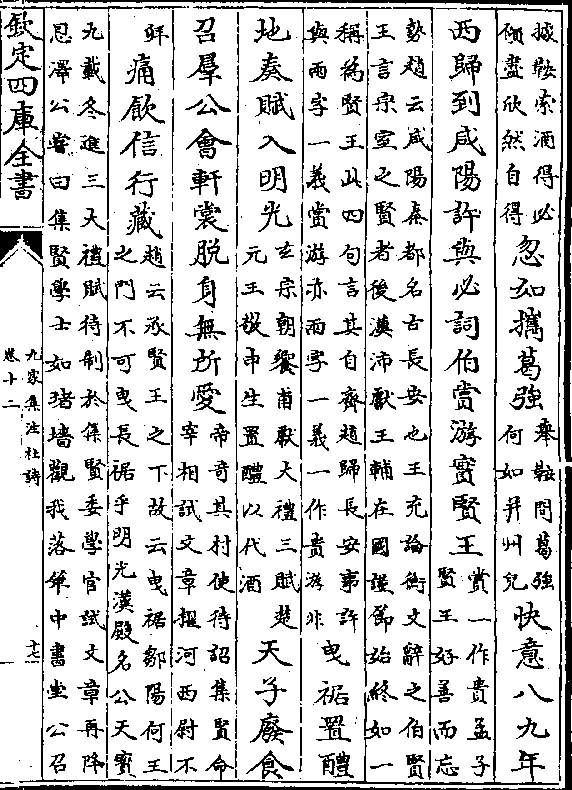 據鞍索酒得必
傾盡欣然自得
忽如攜葛強
舉鞍問葛強
何如并州兒
快意八九年
西歸到咸陽許與必詞伯賞游實賢王
賞一作貴孟子
賢王好善而忘
勢趙云咸陽秦都名古長安也王充論衡文辭之伯賢
王言宗室之賢者後漢沛獻王輔在國謹節始終如一
稱為賢王此四句言其自齊趙歸長安事許
與兩字一義賞游亦兩字一義一作貴游非
曳裾置醴
地奏賦入明光
玄宗朝饗甫獻大禮三賦楚
元王敬申生置醴以代酒
天子廢食
召羣公會軒裳脫身無所愛
帝奇其材使待詔集賢命
宰相試文章擢河西尉不
拜
痛飲信行藏
趙云承賢王之下故云曳裾鄒陽何王
之門不可曳長裾乎明光漢殿名公天寳
九載冬進三大禮賦待制於集賢委學官試文章再降
恩澤公嘗曰集賢學士如堵墻觀我落筆中書堂公召
欽定四庫全書
九家集注杜詩
卷十二
十七